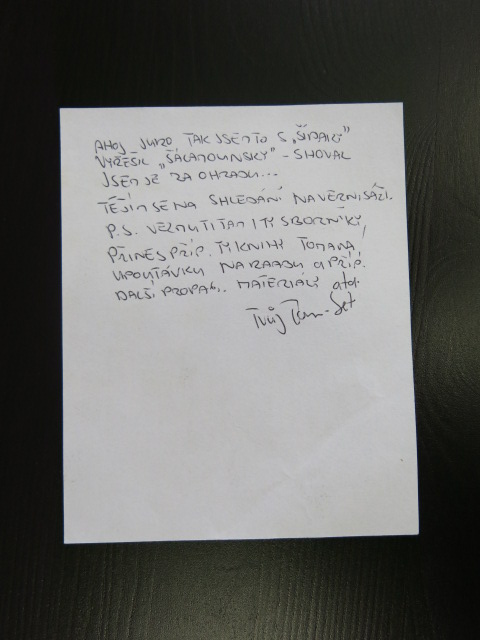 AHOJ JURO TAK JSEM TO S „ŠÍDAŘI"
VYŘEŠIL „ŠALAMOUNSKY" - SHOVAL
JSEM JE ZA OHRADU...
TĚŠÍM SE NA SHLEDÁNÍ NA VERNISÁŽI.
P.S. VEZMU TI TAM I TY SBORNÍKY,
PŘINES PŘÍP. TY KNIHY TOMANA,
UPOUTÁVKU NA a PŘÍP.
DALŠÍ PROPAG. MATERIÁLY atd.
Tvůj